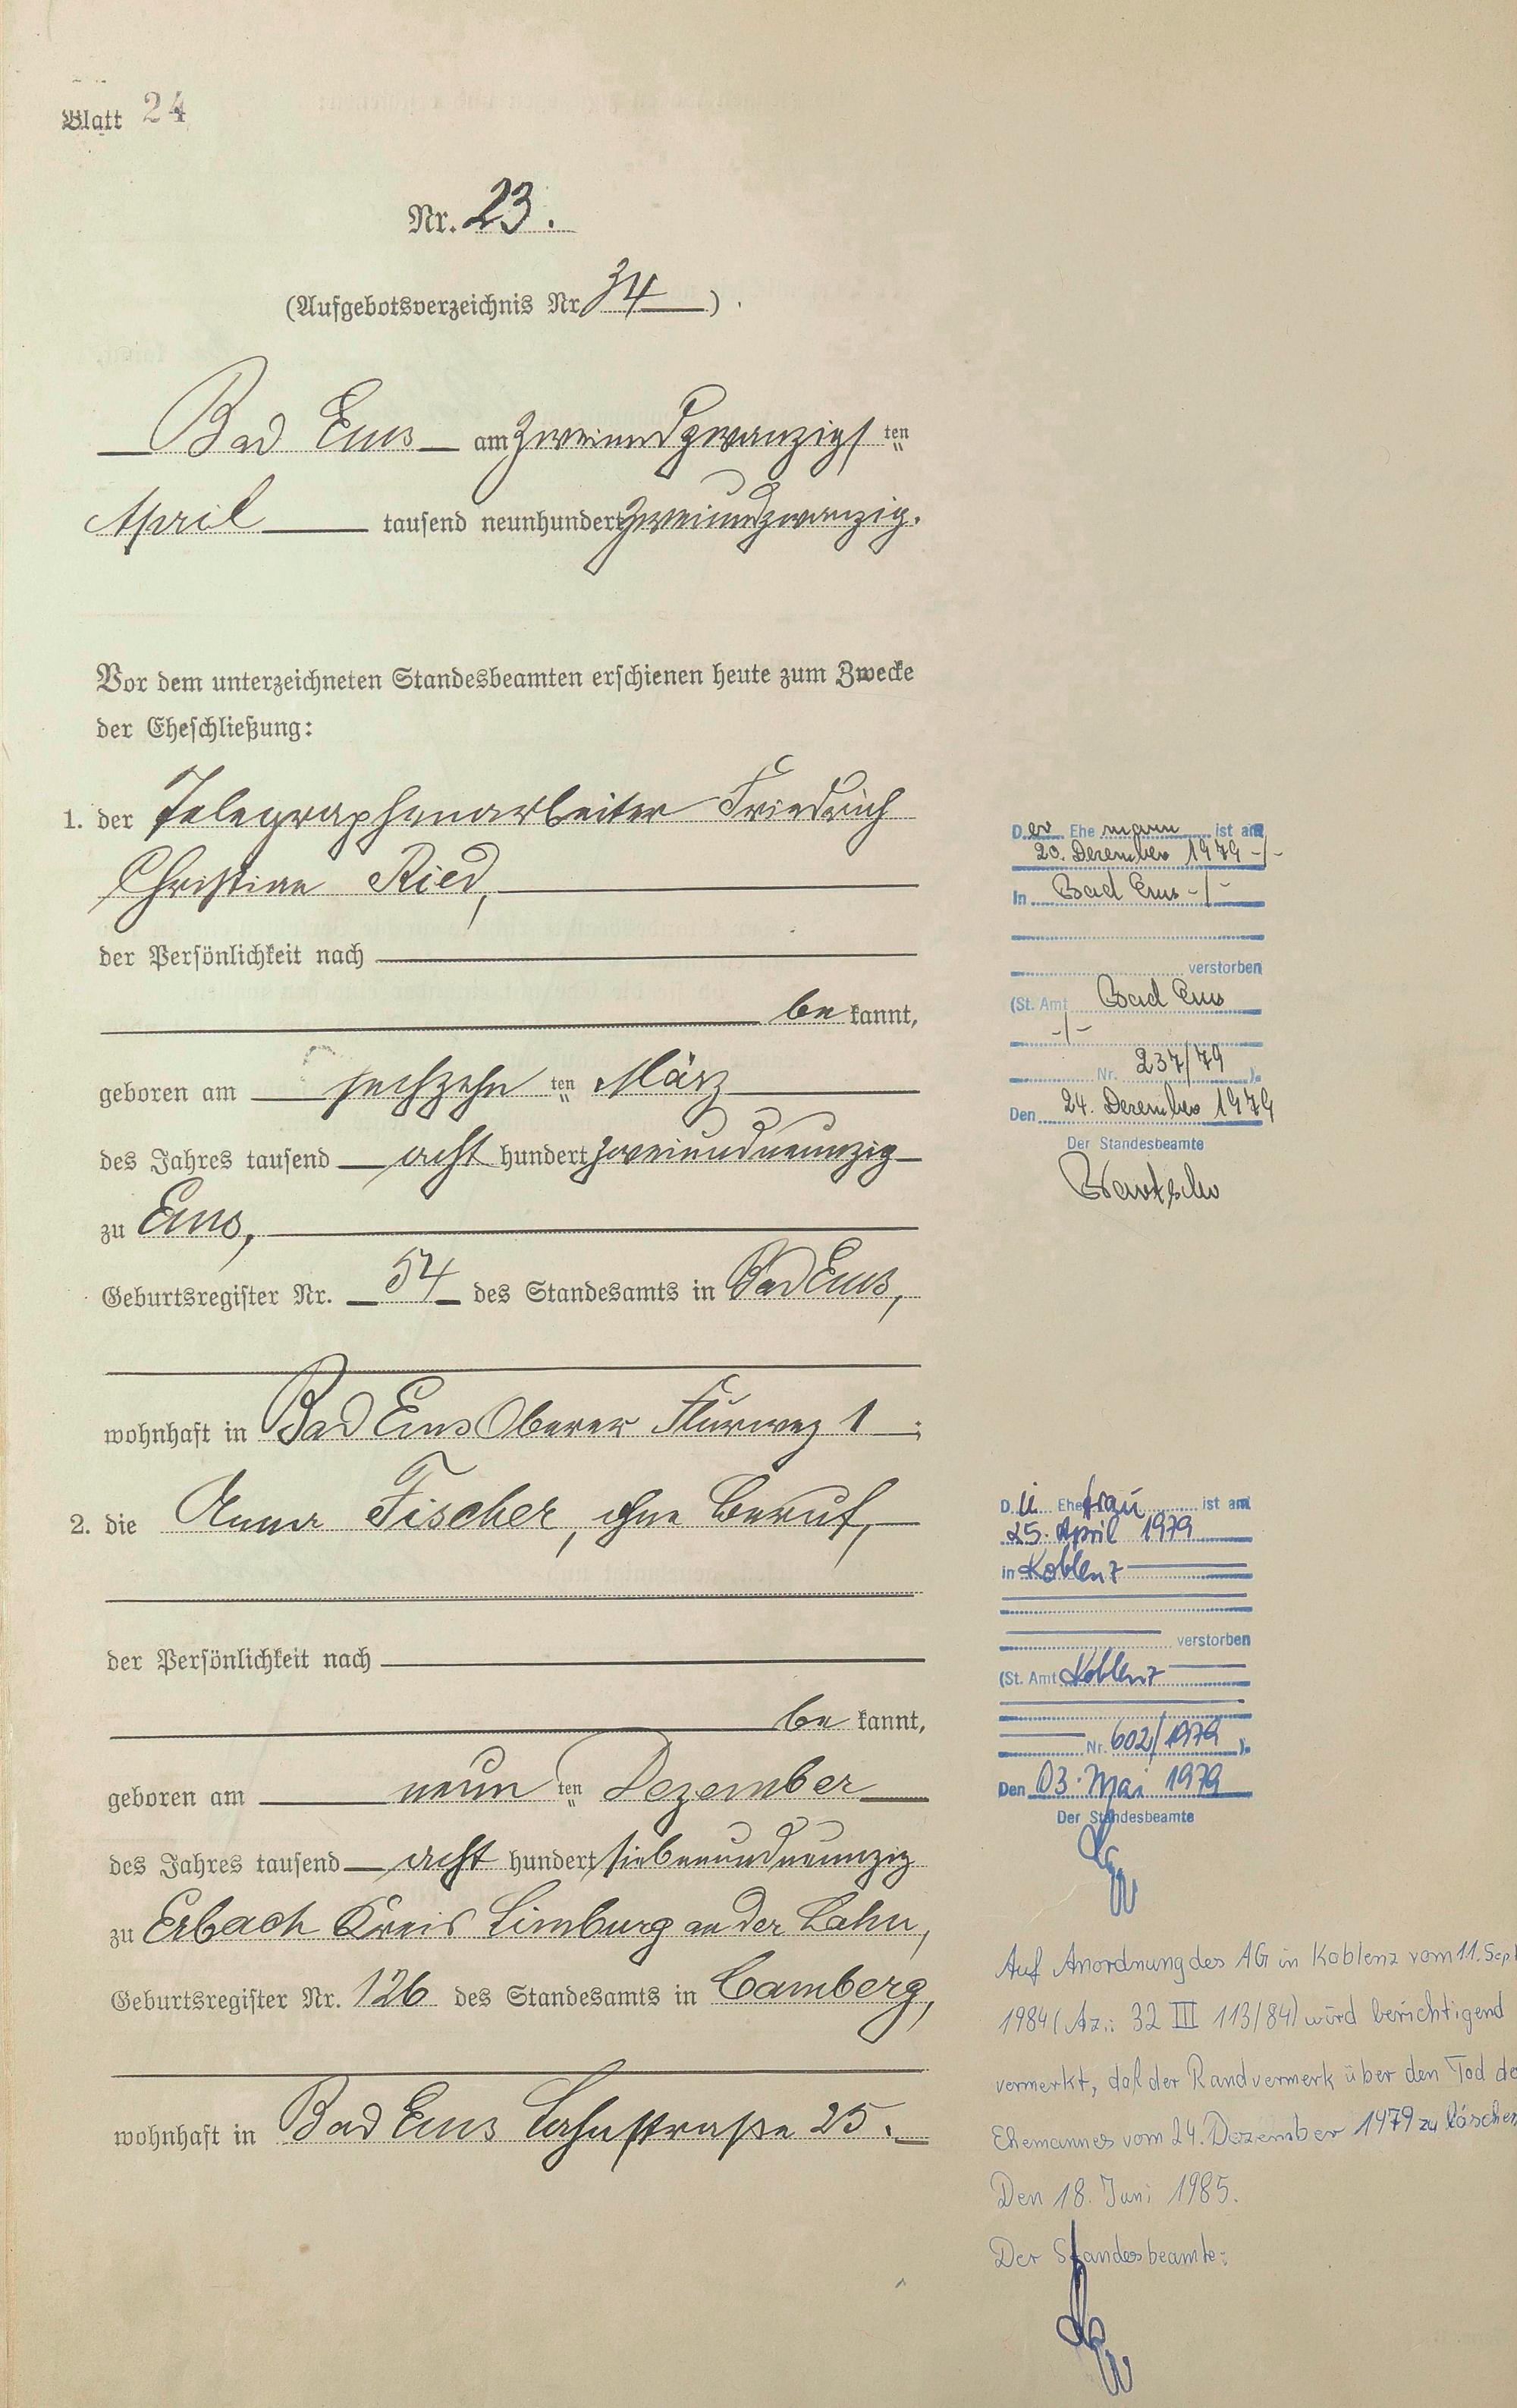 Blatt 24
Nr. 23.
(Aufgebotsverzeichnis Nr 34)
Bad Ems am zweiundzwanzigsten
April tausend neunhundert zweiundzwanzig.
Vor dem unterzeichneten Standesbeamten erschienen heute zum Zwecke
der Eheschließung:
1. der Telegraphenarbeiter Friedrich
Christian Ried,
der Persönlichkeit nach
bekannt,
geboren am sechzehnten März
des Jahres tausend acht hundert zweiundneunzig
zu Ems,
Geburtsregister Nr. 54 des Standesamts in Bad Ems,
wohnhaft in Bad Ems Oberer Flurweg 1;
2. die Anna Fischer, ohne Beruf,
der Persönlichkeit nach
bekannt,
geboren am neunten Dezember
des Jahres tausend acht hundert siebenundneunzig
zu Erbach Kreis Limburg an der Lahn,
Geburtsregister Nr. 126 des Standesamts in Camberg,
wohnhaft in Bad Ems Lahnstraße 25.
Der Ehemann ist am
20. Dezember 1979 -/-
In Bad Ems -/-
verstorben
(St. Amt Bad Ems
-/-
Nr. 237/79 ).
Den 24. Dezember 1979
Der Standesbeamte
Die Ehefrau ist am
25. April 1979
in Koblenz
verstorben
(St. Amt Koblenz
Nr. 602/1979 ).
Den 03. Mai 1979
Der Standesbeamte
Auf Anordnung des AG in Koblenz vom 11. Sept
1984 (Az.: 32 III 113/84) wird berichtigend
vermerkt, daß der Randvermerk über den Tod de
Ehemannes vom 24. Dezember 1979 zu löschen
Den 18. Juni 1985.
Der Standesbeamte: